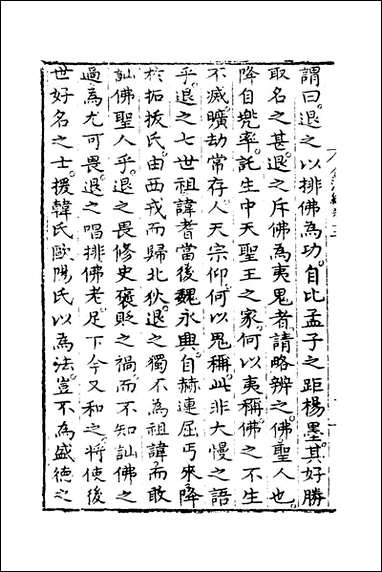 謂曰退之以排佛為功自比孟子之距楊墨其好勝
取名之甚退之斥佛為夷鬼者請略辨之佛聖人也
降自兜率託生中天聖王之家何以夷稱佛之不生
不滅曠劫常存人天宗仰何以鬼稱此非大慢之語
乎退之七世祖諱耆當後魏永興自赫連屈丐來降
於拓拔氏由西戎而歸北狄退之獨不為祖諱而敢
訕佛聖人乎退之畏修史褒貶之禍而不知訕佛之
過為尤可畏退之唱排佛老足下今又和之將使後
世好名之士援韓氏歐陽氏以為法豈不為盛德之